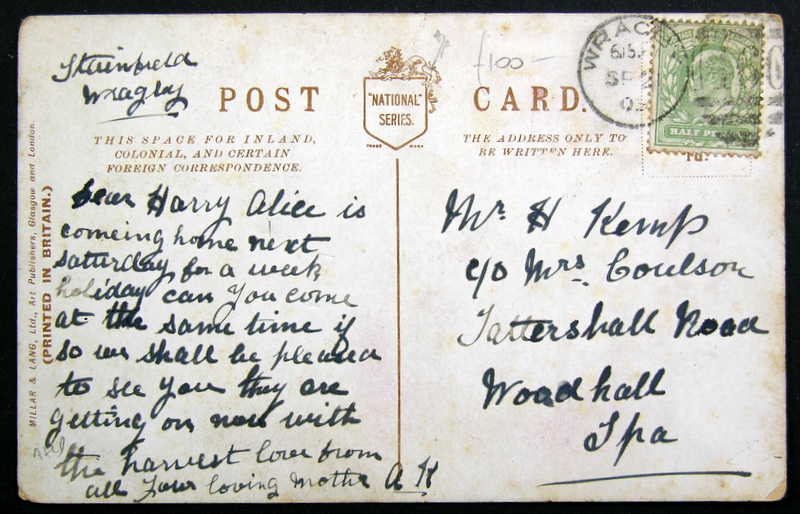 Stainfield
Wragby
POST CARD.
"NATIONAL"
SERIES.
TRADE MARK
£100 -
WRAGBY
SP
HALF PENNY
THIS SPACE FOR INLAND,
COLONIAL, AND CERTAIN
FOREIGN CORRESPONDENCE.
THE ADDRESS ONLY TO
BE WRITTEN HERE.
MILLAR & LANG, Ltd., Art Publishers, Glasgow and London.
(PRINTED IN BRITAIN.)
Dear Harry Alice is
comeing home next
saturday for a week
holiday can you come
at the same time if
so we shall be pleased
to see you they are
getting on now with
the harvest love from
all your loving Mother A K
Mr H Kemp
c/o Mrs. Coulson
Tattershall Road
Woodhall
Spa